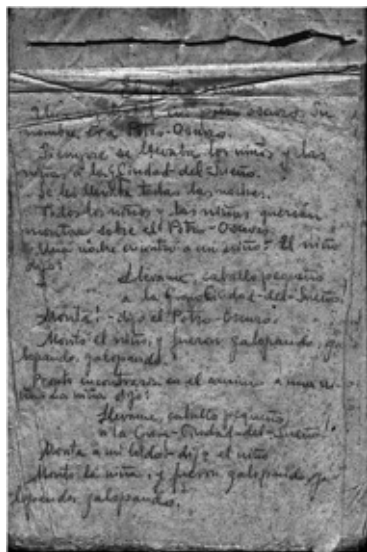 Un potro oscuro. Su
nombre era Potro-Oscuro.
Siempre se llevaba los niños y las
niñas a la Ciudad-del-Sueño.
Se les llevaba todas las noches.
Todos los niños y las niñas querían
montar sobre el Potro-Oscuro.
Una noche encontró a un niño. El niño
dijo:
Llévame, caballo pequeño,
a la Gran-Ciudad-del-Sueño.
¡Monta! - dijo el Potro-Oscuro.
Montó el niño, y fueron galopando, ga-
lopando, galopando.
Pronto encontraron en el camino a una ni-
ña. La niña dijo:
Llévame, caballo pequeño,
a la Gran-Ciudad-del-Sueño.
Monta a mi lado - dijo el niño.
Montó la niña, y fueron galopando, ga-
lopando, galopando.